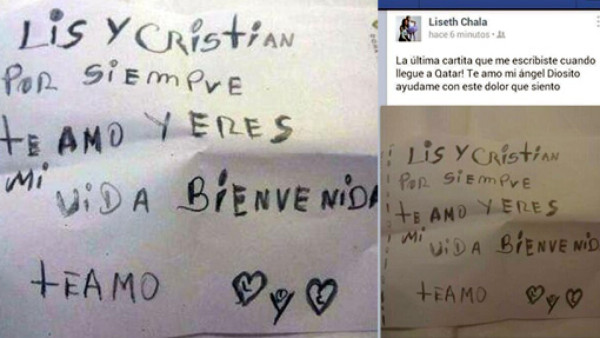 LiS Y CRiStiAN
POR SiEMPRE
tE AMO Y ERES
Mi
ViDA BiENVENiDA
tEAMO
Y
Liseth Chala
hace 6 minutos
La última cartita que me escribiste cuando
llegue a Qatar! Te amo mi ángel Diosito
ayudame con este dolor que siento
LiS Y CRiStiAN
POR SiEMPRE
tE AMO Y ERES
Mi
ViDA BiENVENiD
tEAMO
Y